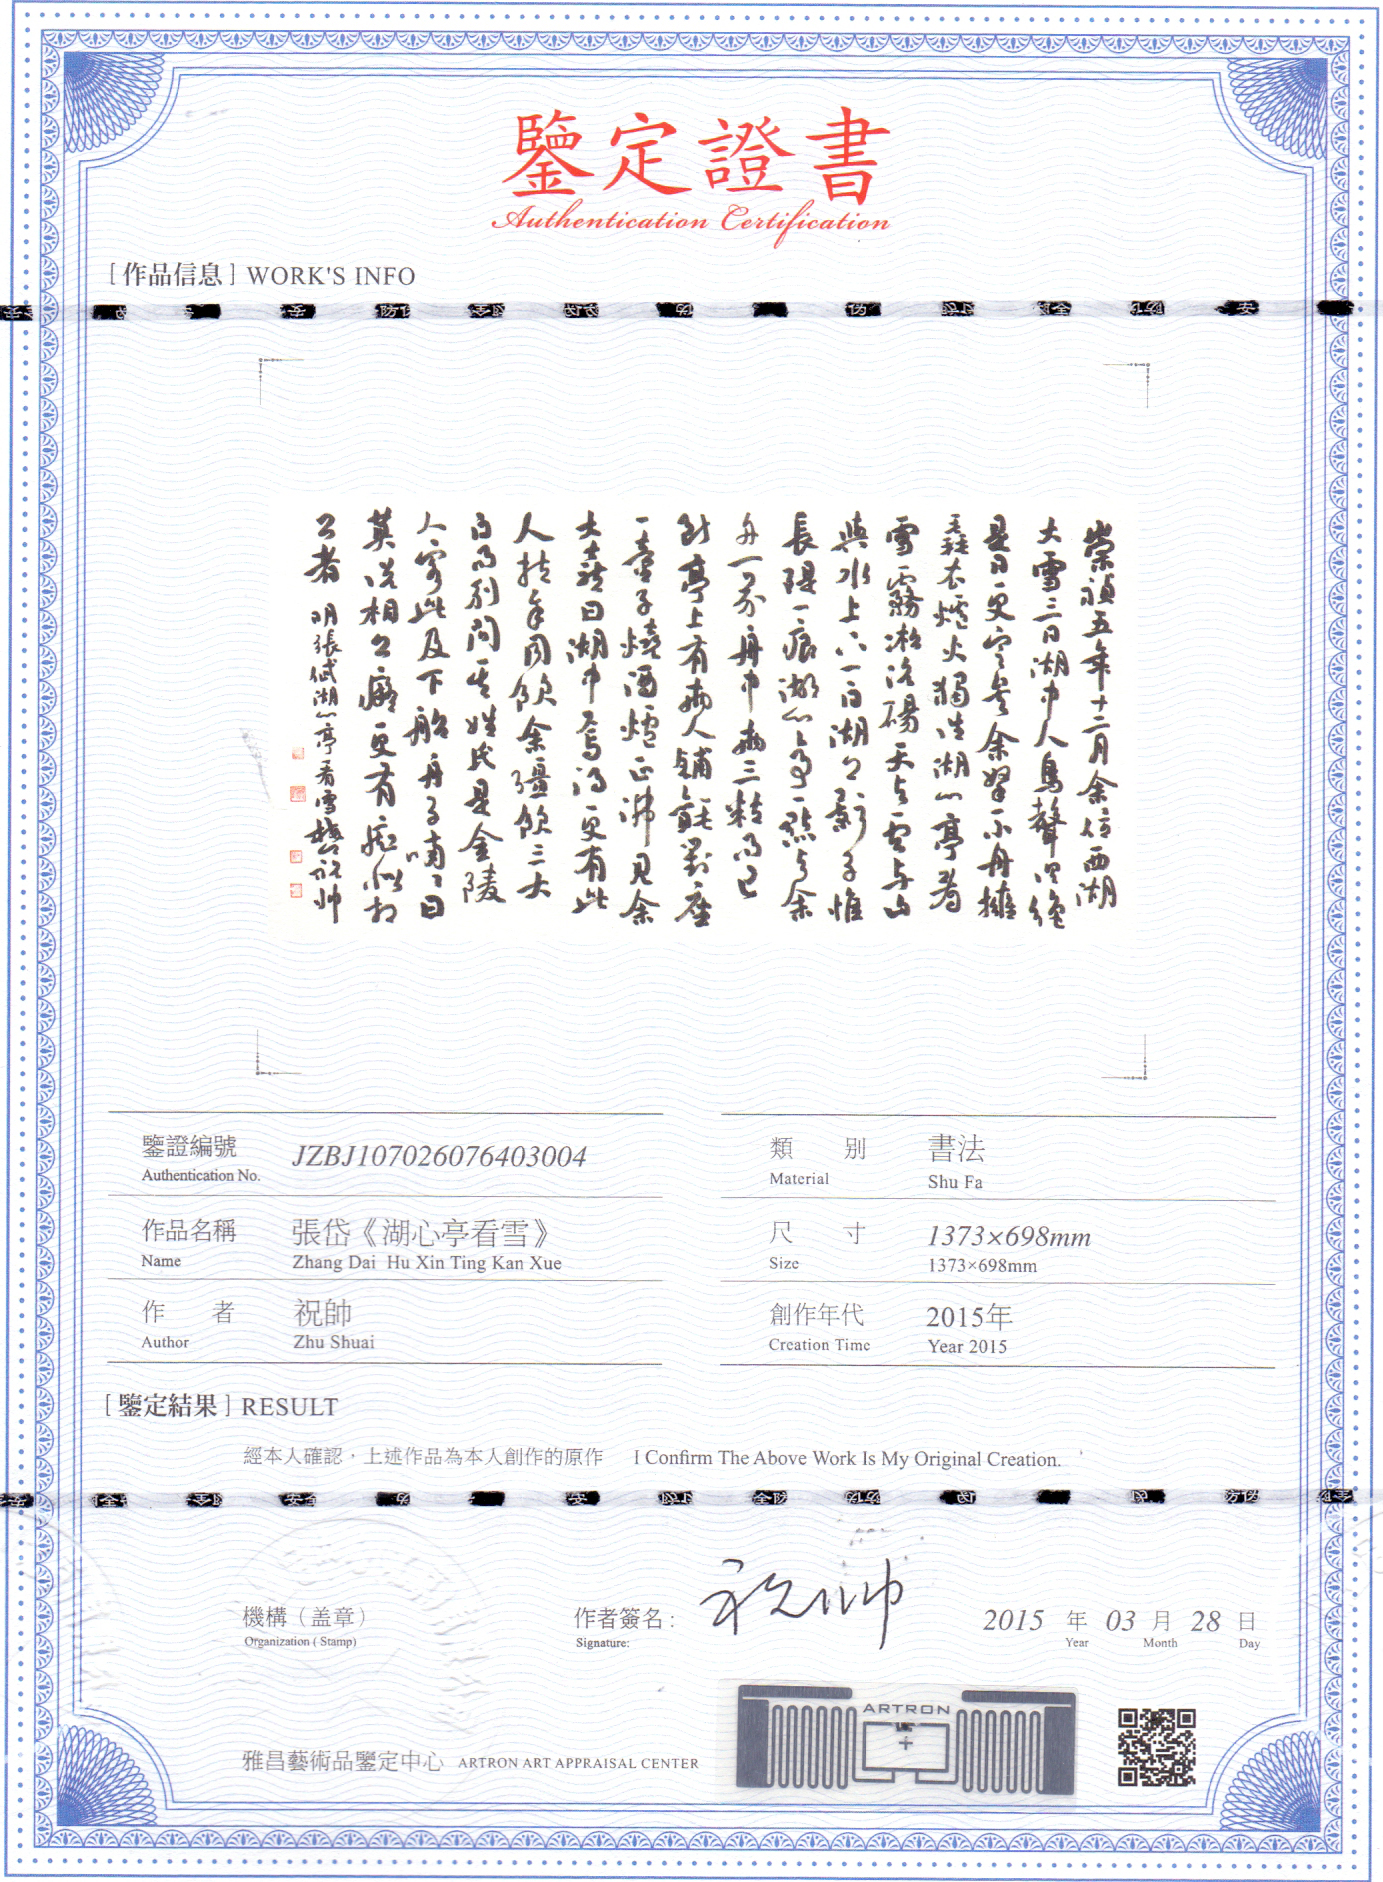 鑒定證書
Authentication Certification
[作品信息] WORK'S INFO
崇禎五年十二月余住西湖
大雪三日湖中人鳥聲俱絕
是日更定矣余拏一小舟擁
毳衣爐火獨往湖心亭看
雪霧凇沆碭天與雲與山
與水上下一白湖上影子惟
長堤一痕湖心亭一點與余
舟一芥舟中兩三粒而已
到亭上有兩人鋪氈對座
一童子燒酒爐正沸見余
大喜曰湖中焉得更有此
人拉余同飲余強飲三大
白而別問其姓氏是金陵
人客此及下船舟子喃喃曰
莫說相公癡更有癡似相
公者 明張岱湖心亭看雪 祝帥
鑒證編號 JZBJ107026076403004
Authentication No.
類別 書法
Material Shu Fa
作品名稱 張岱《湖心亭看雪》
Name Zhang Dai Hu Xin Ting Kan Xue
尺寸 1373×698mm
Size 1373×698mm
作者 祝帥
Author Zhu Shuai
創作年代 2015年
Creation Time Year 2015
[鑒定結果] RESULT
經本人確認，上述作品為本人創作的原作 I Confirm The Above Work Is My Original Creation.
機構（盖章）
Organization ( Stamp)
作者簽名： 祝帥
Signature:
2015 年 03 月 28 日
Year Month Day
ARTRON
雅昌藝術品鑒定中心 ARTRON ART APPRAISAL CENTER